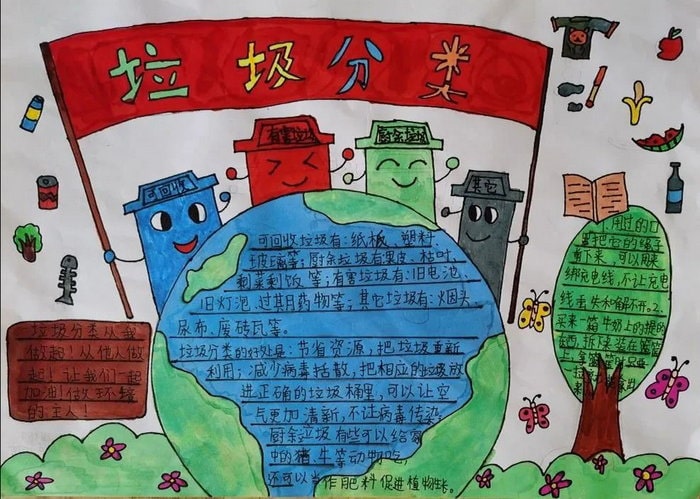 垃圾分类
可回收
有害垃圾
厨余垃圾
其它
可回收垃圾有：纸板、塑料、
玻璃等；厨余垃圾有果皮、枯叶、
剩菜剩饭等；有害垃圾有：旧电池、
旧灯泡、过其月药物等；其它垃圾有：烟头、
尿布、废砖瓦等。
垃圾分类的好处是：节省资源，把垃圾重新
利用，减少病毒括散，把相应的垃圾放
进正确的垃圾桶里，可以让空
气更加清新，不让病毒传染。
厨余垃圾有些可以给家
中的猪、牛等动物吃，
还可以当作肥料促进植物生长。
垃圾分类从我
做起！从他人做
起！让我们一起
加油！做环境
的主人！
1.用过的口
罩把它的绳子
剪下来，可以用来
绑充电线，不让充电
线丢失和解不开。2.
买来一箱牛奶上的提的
东西，拆下来装在篮
上，
来